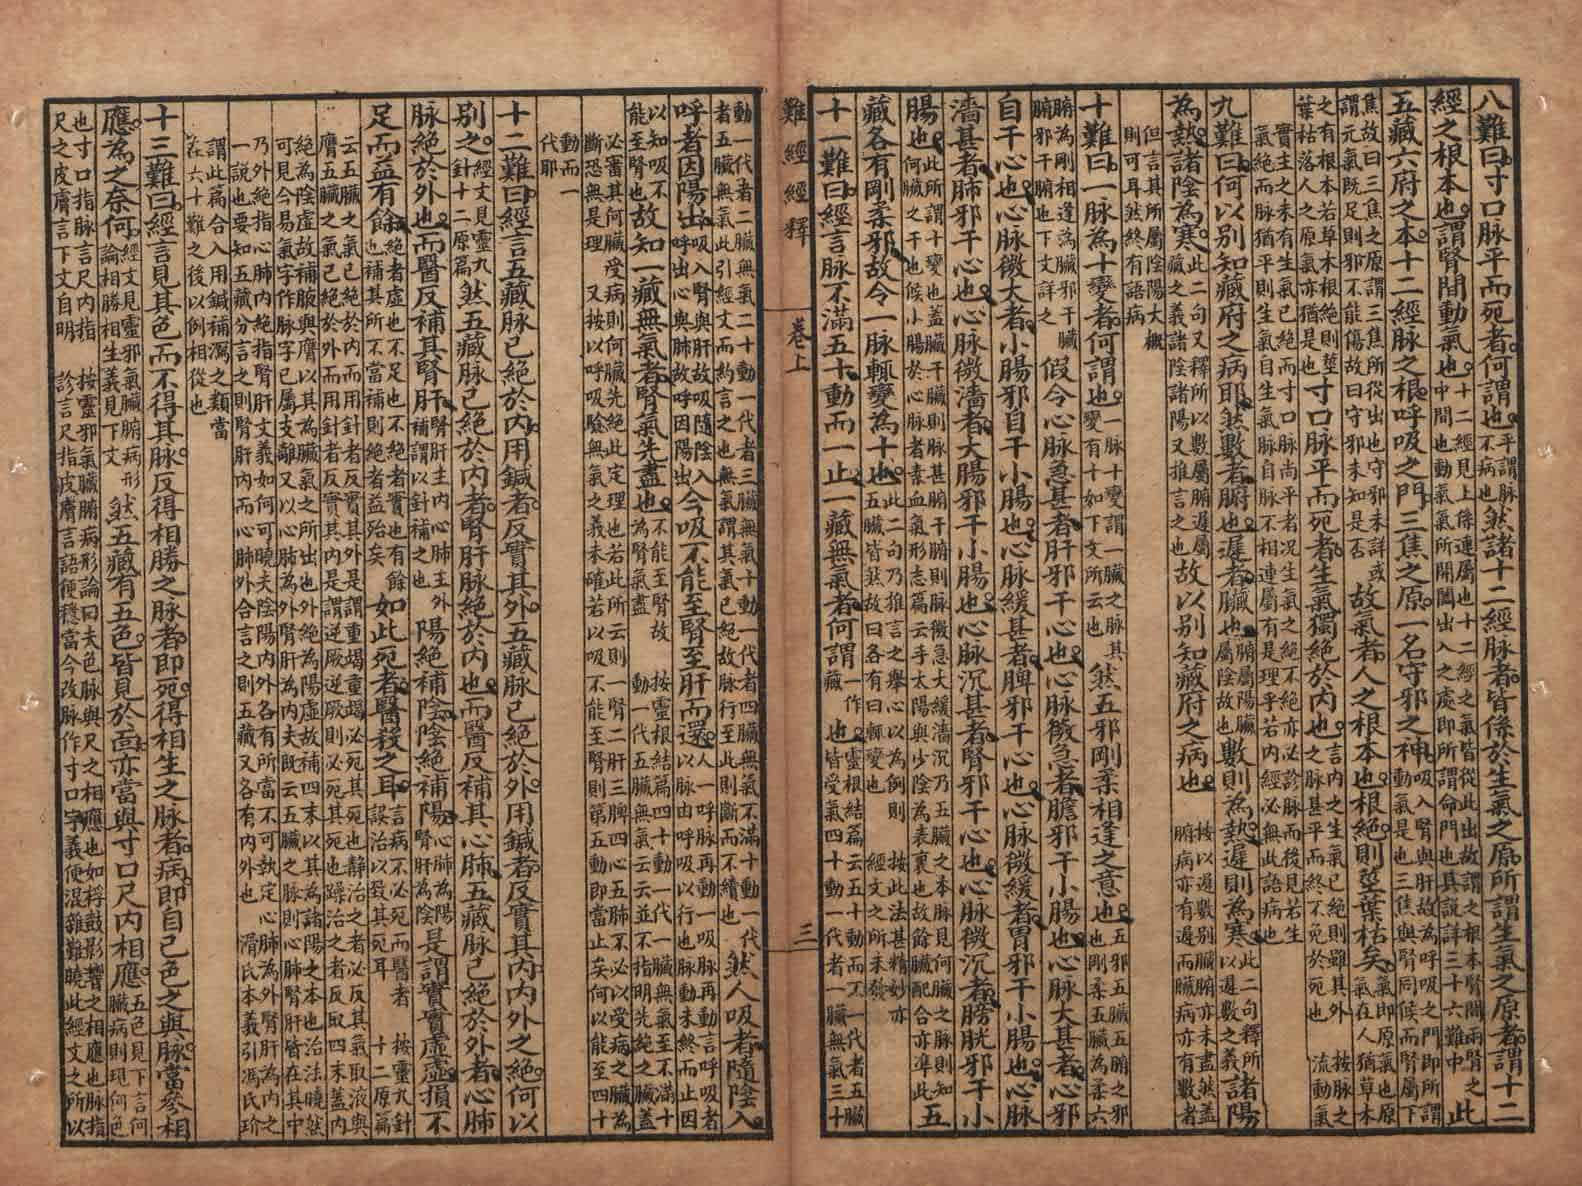 八難曰寸口脉平而死者何謂也平謂脉不病也然諸十二經脉者皆係於生氣之原所謂生氣之原者謂十二
經之根本也謂腎間動氣也十二經見上係連屬也十二經之氣皆從此出故謂之根本腎間兩腎之中間也動氣氣所開闔出入之處即所謂命門也其說詳三十六難中此
五藏六府之本十二經脉之根呼吸之門三焦之原一名守邪之神吸入腎與肝故為呼吸之門即所謂動氣是也三焦與腎同候而腎屬下
焦故曰三焦之原謂三焦所從出也守邪未詳或謂元氣既足則邪不能傷故曰守邪未知是否故氣者人之根本也根絕則莖葉枯矣氣即原氣也原氣在人猶草木
之有根本若草木根絕則莖葉枯落人之原氣亦猶是也寸口脉平而死者生氣獨絕於內也言內之生氣已絕則雖外之脉甚平而終不免於死也按脉之流動氣
實生之未有生氣已絕而寸口脉尚平者况生氣之絕不絕亦必診脉而後見若生氣絕而脉猶平則生氣自生氣脉自脉不相連屬有是理乎若內經必無此語病也
九難曰何以別知藏府之病耶然數者腑也遲者臟也腑屬陽臟屬陰故也數則為熱遲則為寒此二句釋所以遲數之義諸陽
為熱諸陰為寒此二句又釋所以數屬腑遲屬藏之義諸陰諸陽又推言之也故以別知藏府之病也按以遲數別臟腑亦未盡然盖腑病亦有遲而臟病亦有數者
但言其所屬陰陽大概則可耳然終有語病
十難曰一脉為十變者何謂也一脉十變謂一臟之脉其變有十如下文所云也然五邪剛柔相逢之意也五邪五臟五腑之邪也剛柔五臟為柔六
腑為剛相逢為臟邪干臟腑邪干腑也下文詳之假令心脉急甚者肝邪干心也心脉微急者膽邪干小腸也心脉大甚者心邪
自干心也心脉微大者小腸邪自干小腸也心脉緩甚者脾邪干心也心脉微緩者胃邪干小腸也心脉
濇甚者肺邪干心也心脉微濇者大腸邪干小腸也心脉沉甚者腎邪干心也心脉微沉者膀胱邪干小
腸也此所謂十變也盖臟干臟則脉甚腑干腑則脉微急大緩濇沉乃五臟之本脉見何臟之脉則知何臟之干也候小腸於心脉者素血氣形志篇云手太陽與少陰為表裏也故餘臟配合亦準此五
藏各有剛柔邪故令一脉輒變為十也此二句乃推言之舉心以為例則五臟皆然故曰各有曰輒變也按此法甚精妙亦經文之所未發
十一難曰經言脉不滿五十動而一止一藏無氣者何謂一作藏也靈根結篇云五十動而不一代者五臟皆受氣四十動一代者一臟無氣三十
難經經釋
卷上
三
動一代者二臟無氣二十動一代者三臟無氣十動一代者四臟無氣不滿十動一代者五臟無氣此引經文而約言之也無氣謂其氣已絕故脉行至此則斷而不續也然人吸者隨陰入
呼者因陽出吸入腎與肝故吸隨陰入呼出心與肺故呼因陽出今吸不能至腎至肝而還人一呼脉再動一吸脉再動言呼吸者以脉由呼吸以行也脉動未終而止因
以知吸不能至腎也故知一藏無氣者腎氣先盡也不能至腎故為腎氣盡按靈根結篇四十動一代一臟無氣至不滿十動一代五臟無氣云云並不指明先絕之臟盖
必審其何臟受病則何臟先絕此定理也若此所云則一腎二肝三脾四心五肺不必以受病之臟為斷恐無是理又按以呼吸驗無氣之義未確若以吸不能至腎則第五動即當止矣何以能至四十
動而一代耶
十二難曰經言五藏脉已絕於內用鍼者反實其外五藏脉已絕於外用鍼者反實其內內外之絕何以
別之經文見靈九針十二原篇然五藏脉已絕於內者腎肝脉絕於內也而醫反補其心肺五藏脉已絕於外者心肺
脉絕於外也而醫反補其腎肝腎肝主內心肺主外補謂以針補之也陽絕補陰陰絕補陽心肺為陽腎肝為陰是謂實實虛虛損不
足而益有餘絕者虛也不足也不絕者實也有餘也補其所不當補則絕者益殆矣如此死者醫殺之耳言病不必死而醫者誤治以致其死耳按靈九針十二原篇
云五臟之氣已絕於內而用針者反實其外是謂重竭重竭必死其死也靜治之者必反其氣取液與膺五臟之氣已絕於外而用針者反實其內是謂逆厥逆厥則必死其死也躁治之者反取四末盖內
絕為陰虛故補腋與膺以其為臟氣之所出也外絕為陽虛故補四末以其為諸陽之本也治法曉然可見今易氣字作脉字已屬支離又以心肺為外腎肝為內夫既云五臟之脉則心肺腎肝皆在其中
乃外絕指心肺內絕指腎肝文義如何可曉夫陰陽內外各有所當不可執定心肺為外腎肝為內之一說也要知五藏分言之則腎肝內而心肺外合言之則五藏又各有內外也滑氏本義引馮氏玠
謂此篇合入用鍼補瀉之類當在六十難之後以例相從也
十三難曰經言見其色而不得其脉反得相勝之脉者即死得相生之脉者病即自已色之與脉當參相
應為之奈何經文見靈邪氣臟腑病形論相勝相生義見下文然五藏有五色皆見於面亦當與寸口尺內相應五色見下言何臟病則現何色
也寸口指脉言尺內指尺之皮膚言下文自明按靈邪氣臟腑病形論曰夫色脉與尺之相應也如桴鼓影響之相應也脉指診言尺指皮膚言語便穩當今改脉作寸口字義便混雜難曉此經文之所以